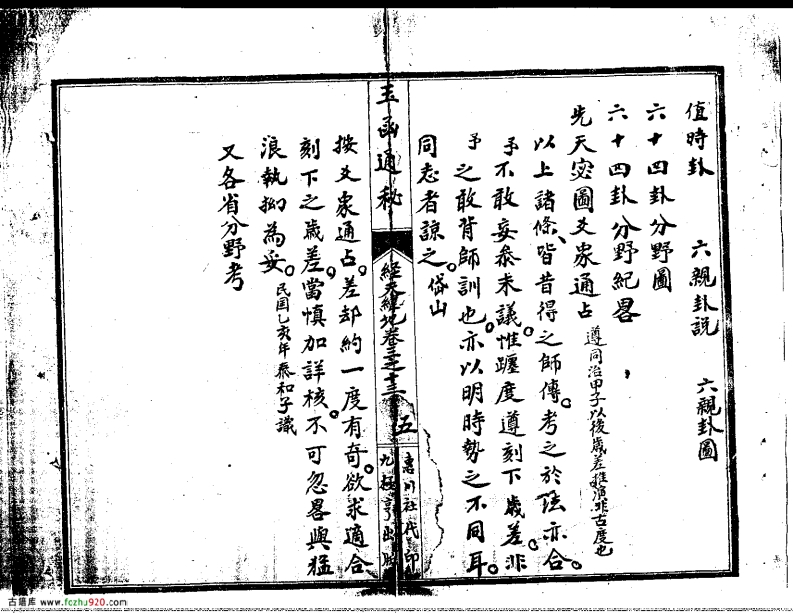 值時卦　六親卦説　六親卦圖
六十四卦分野圖
六十四卦分野紀畧
先天宓圖爻象通占遵同治甲子以後歲差推演非古度也
以上諸條、皆昔得之師傳。考之於陸亦合。
予不敢妄叅末議。惟躔度遵刻下歲差。非
予之敢背師訓也。亦以明時勢之不同耳。
同志者諒之。岱山
玉函通秘
經天緯地卷三之十三
五
惠川社代印
九極亭出版
按爻象通占。差却約一度有奇。欲求適合
刻下之歲差。當慎加詳核。不可忽畧與猛
浪執拗為妥。民国乙亥年泰和子識
又各省分野考
古籍库 www.fczhu920.com